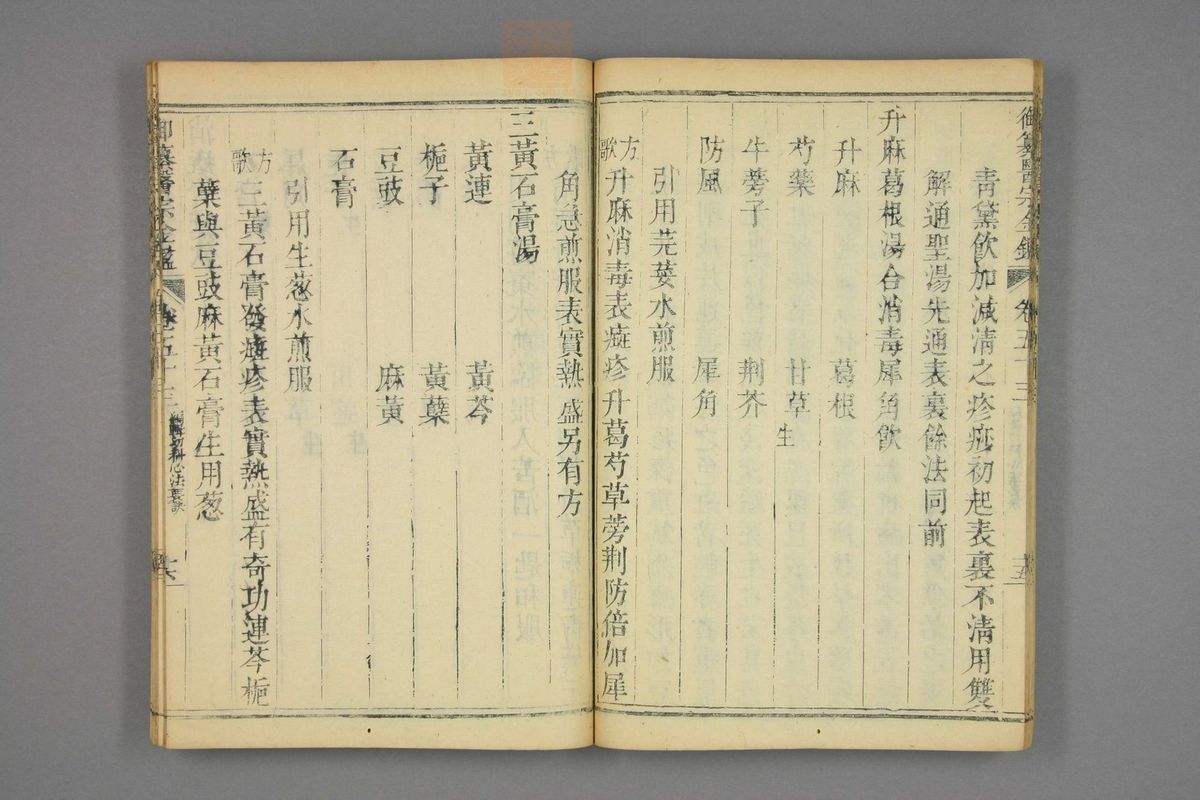 御纂醫宗金鑑 卷五十三 十五
青黛飲加減清之疹痧初起表裏不清用雙
解通聖湯先通表裏餘法同前
升麻葛根湯合消毒犀角飲
升麻 葛根
芍藥 甘草生
牛蒡子 荆芥
防風 犀角
引用芫荽水煎服
方歌 升麻消毒表癍疹升葛芍草蒡荆防倍加犀
角急煎服表實熱盛另有方
三黃石膏湯
黃連 黃芩
梔子 黃蘗
豆豉 麻黃
石膏
引用生葱水煎服
方歌 三黃石膏發癍疹表實熱盛有奇功連芩梔
蘗與豆豉麻黃石膏生用葱
御纂醫宗金鑑 卷五十三 編輯幼科心法要訣 十六